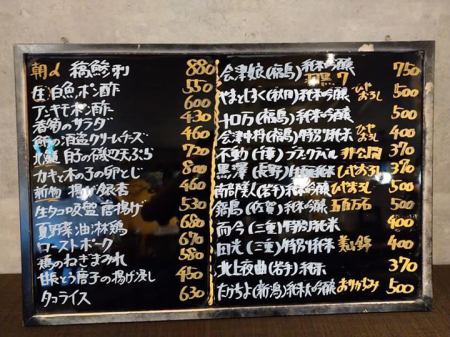 朝〆 稿鯵刺 880
生白魚ポン酢 550
アンキモポン酢 600
春菊のサラダ 430
鮒の酒盗クリームチーズ 460
北鱧 白子の磯天ぷら 720
カキと木の子の卵とじ 800
新物 揚げ銀杏 460
生タコ吸盤唐揚げ 530
夏野菜油淋鶏 680
ローストポーク 670
鶏のねぎまみれ 580
甘長とう唐子の揚げ浸し 450
タコライス 630
会津娘(福島)純米吟醸 羽黒 7 750
やまとしずく(秋田)純米吟醸 ひやおろし 500
十口万(福島)純米吟醸 500
会津中将(福島)特別純米 ひやおろし 400
不動(千葉)ブラックラベル 非公開 370
黒澤(長野)生酛純米 ひやおろし 370
南部美人(岩手)純米吟醸 ひやおろし 500
鍋島(佐賀)純米吟醸 五百万石 500
而今(三重)特別純米 400
田光(三重)特別純米 美山錦 400
北上夜曲(岩手)純米 370
たかちよ(新潟)純米大吟醸 おりがらみ 500